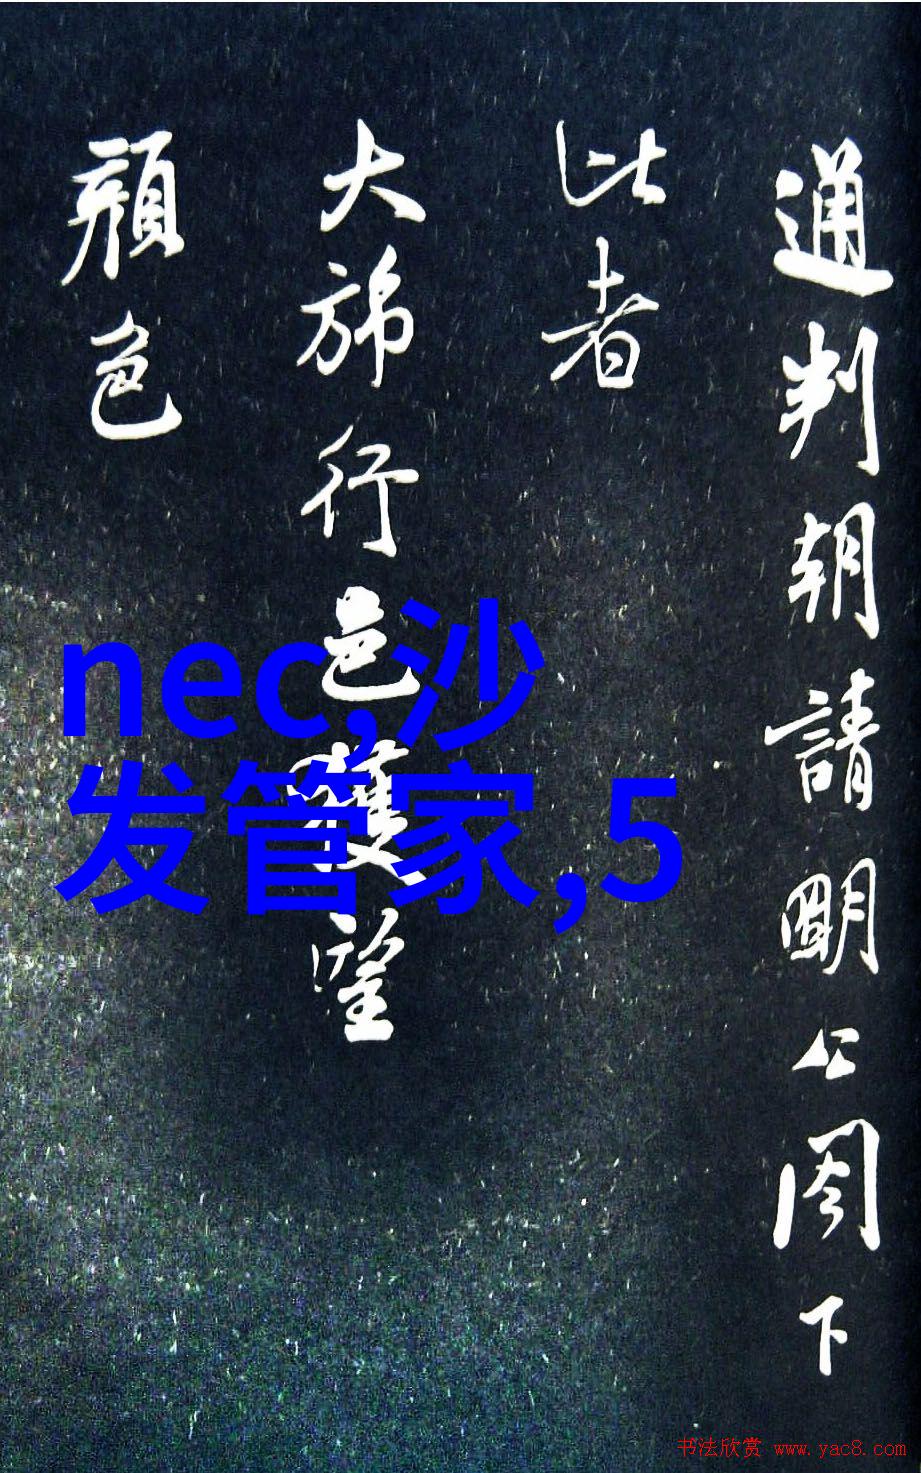 通判朝請朙公閣下
此者
大旆行邑獲望
顏色
nec,沙
发管家,5
书法欣赏 www.yac8.com